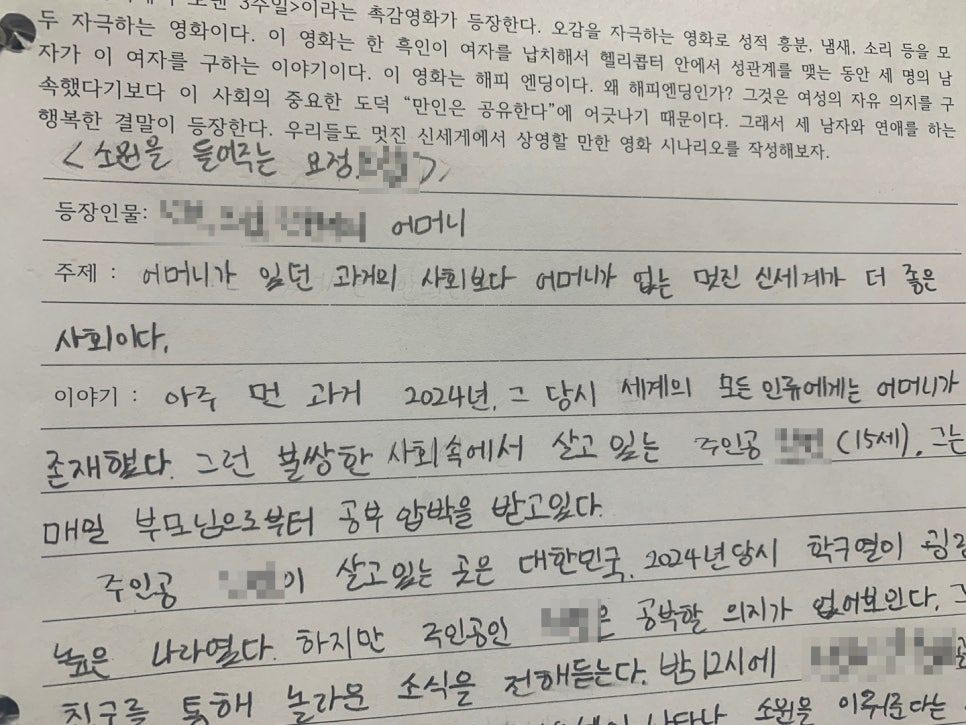 3주일>이라는 촉감영화가 등장한다. 오감을 자극하는 영화로 성적 흥분, 냄새, 소리 등을 모
두 자극하는 영화이다. 이 영화는 한 흑인이 여자를 납치해서 헬리콥터 안에서 성관계를 맺는 동안 세 명의 남
자가 이 여자를 구하는 이야기이다. 이 영화는 해피 엔딩이다. 왜 해피엔딩인가? 그것은 여성의 자유 의지를 구
속했다기보다 이 사회의 중요한 도덕 "만인은 공유한다"에 어긋나기 때문이다. 그래서 세 남자와 연애를 하는
행복한 결말이 등장한다. 우리들도 멋진 신세계에서 상영할 만한 영화 시나리오를 작성해보자.
<소원을 들어주는 요정
등장인물: 어머니
주제 : 어머니가 있던 과거의 사회보다 어머니가 없는 멋진 신세계가 더 좋은
사회이다.
이야기 : 아주 먼 과거 2024년, 그 당시 세계의 모든 인류에게는 어머니가
존재했다. 그런 불쌍한 사회속에서 살고 있는 주인공 (15세), 그는
매일 부모님으로부터 공부 압박을 받고있다.
주인공 이 살고있는 곳은 대한민국, 2024년당시 학구열이 굉장
높은 나라였다. 하지만 주인공인 은 공부할 의지가 없어보인다. 그
친구를 통해 놀라운 소식을 전해듣는다. 밤12시에
나타나 소원을 이뤄준다는